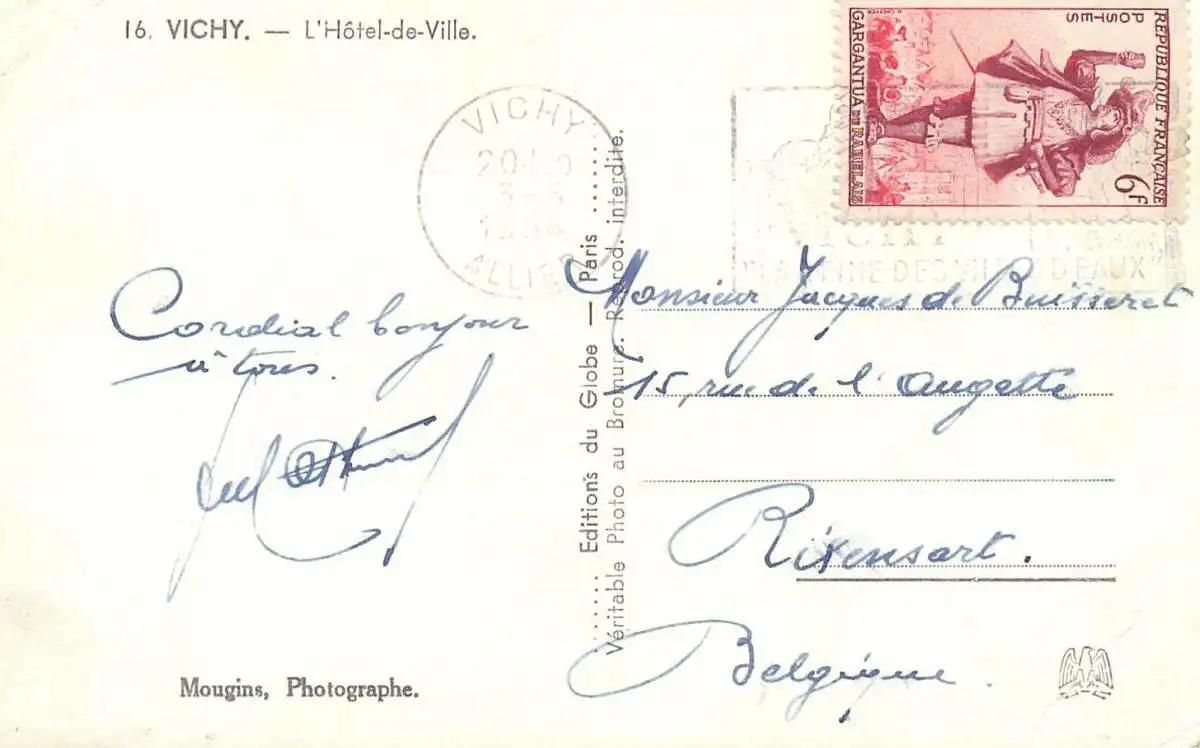 16. VICHY. — L'Hôtel-de-Ville.
REPUBLIQUE FRANÇAISE
POSTES
6f
GARGANTUA DE RABELAIS
VICHY
1954
ALLIER
Cordial bonjour
à tous.
Monsieur Jacques de Buisseret
15, rue de l'Augette
Rixensart.
Belgique.
Editions du Globe — Paris
Véritable Photo au Bromure. Reprod. interdite.
Mougins, Photographe.